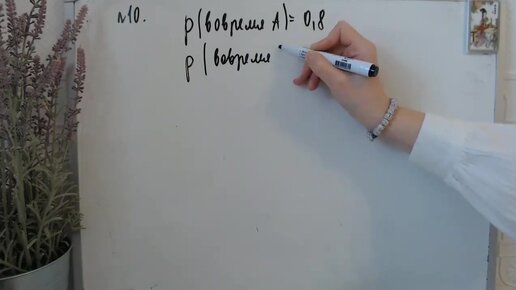 №10. p(вовремя A)= 0,8
p(вовремя